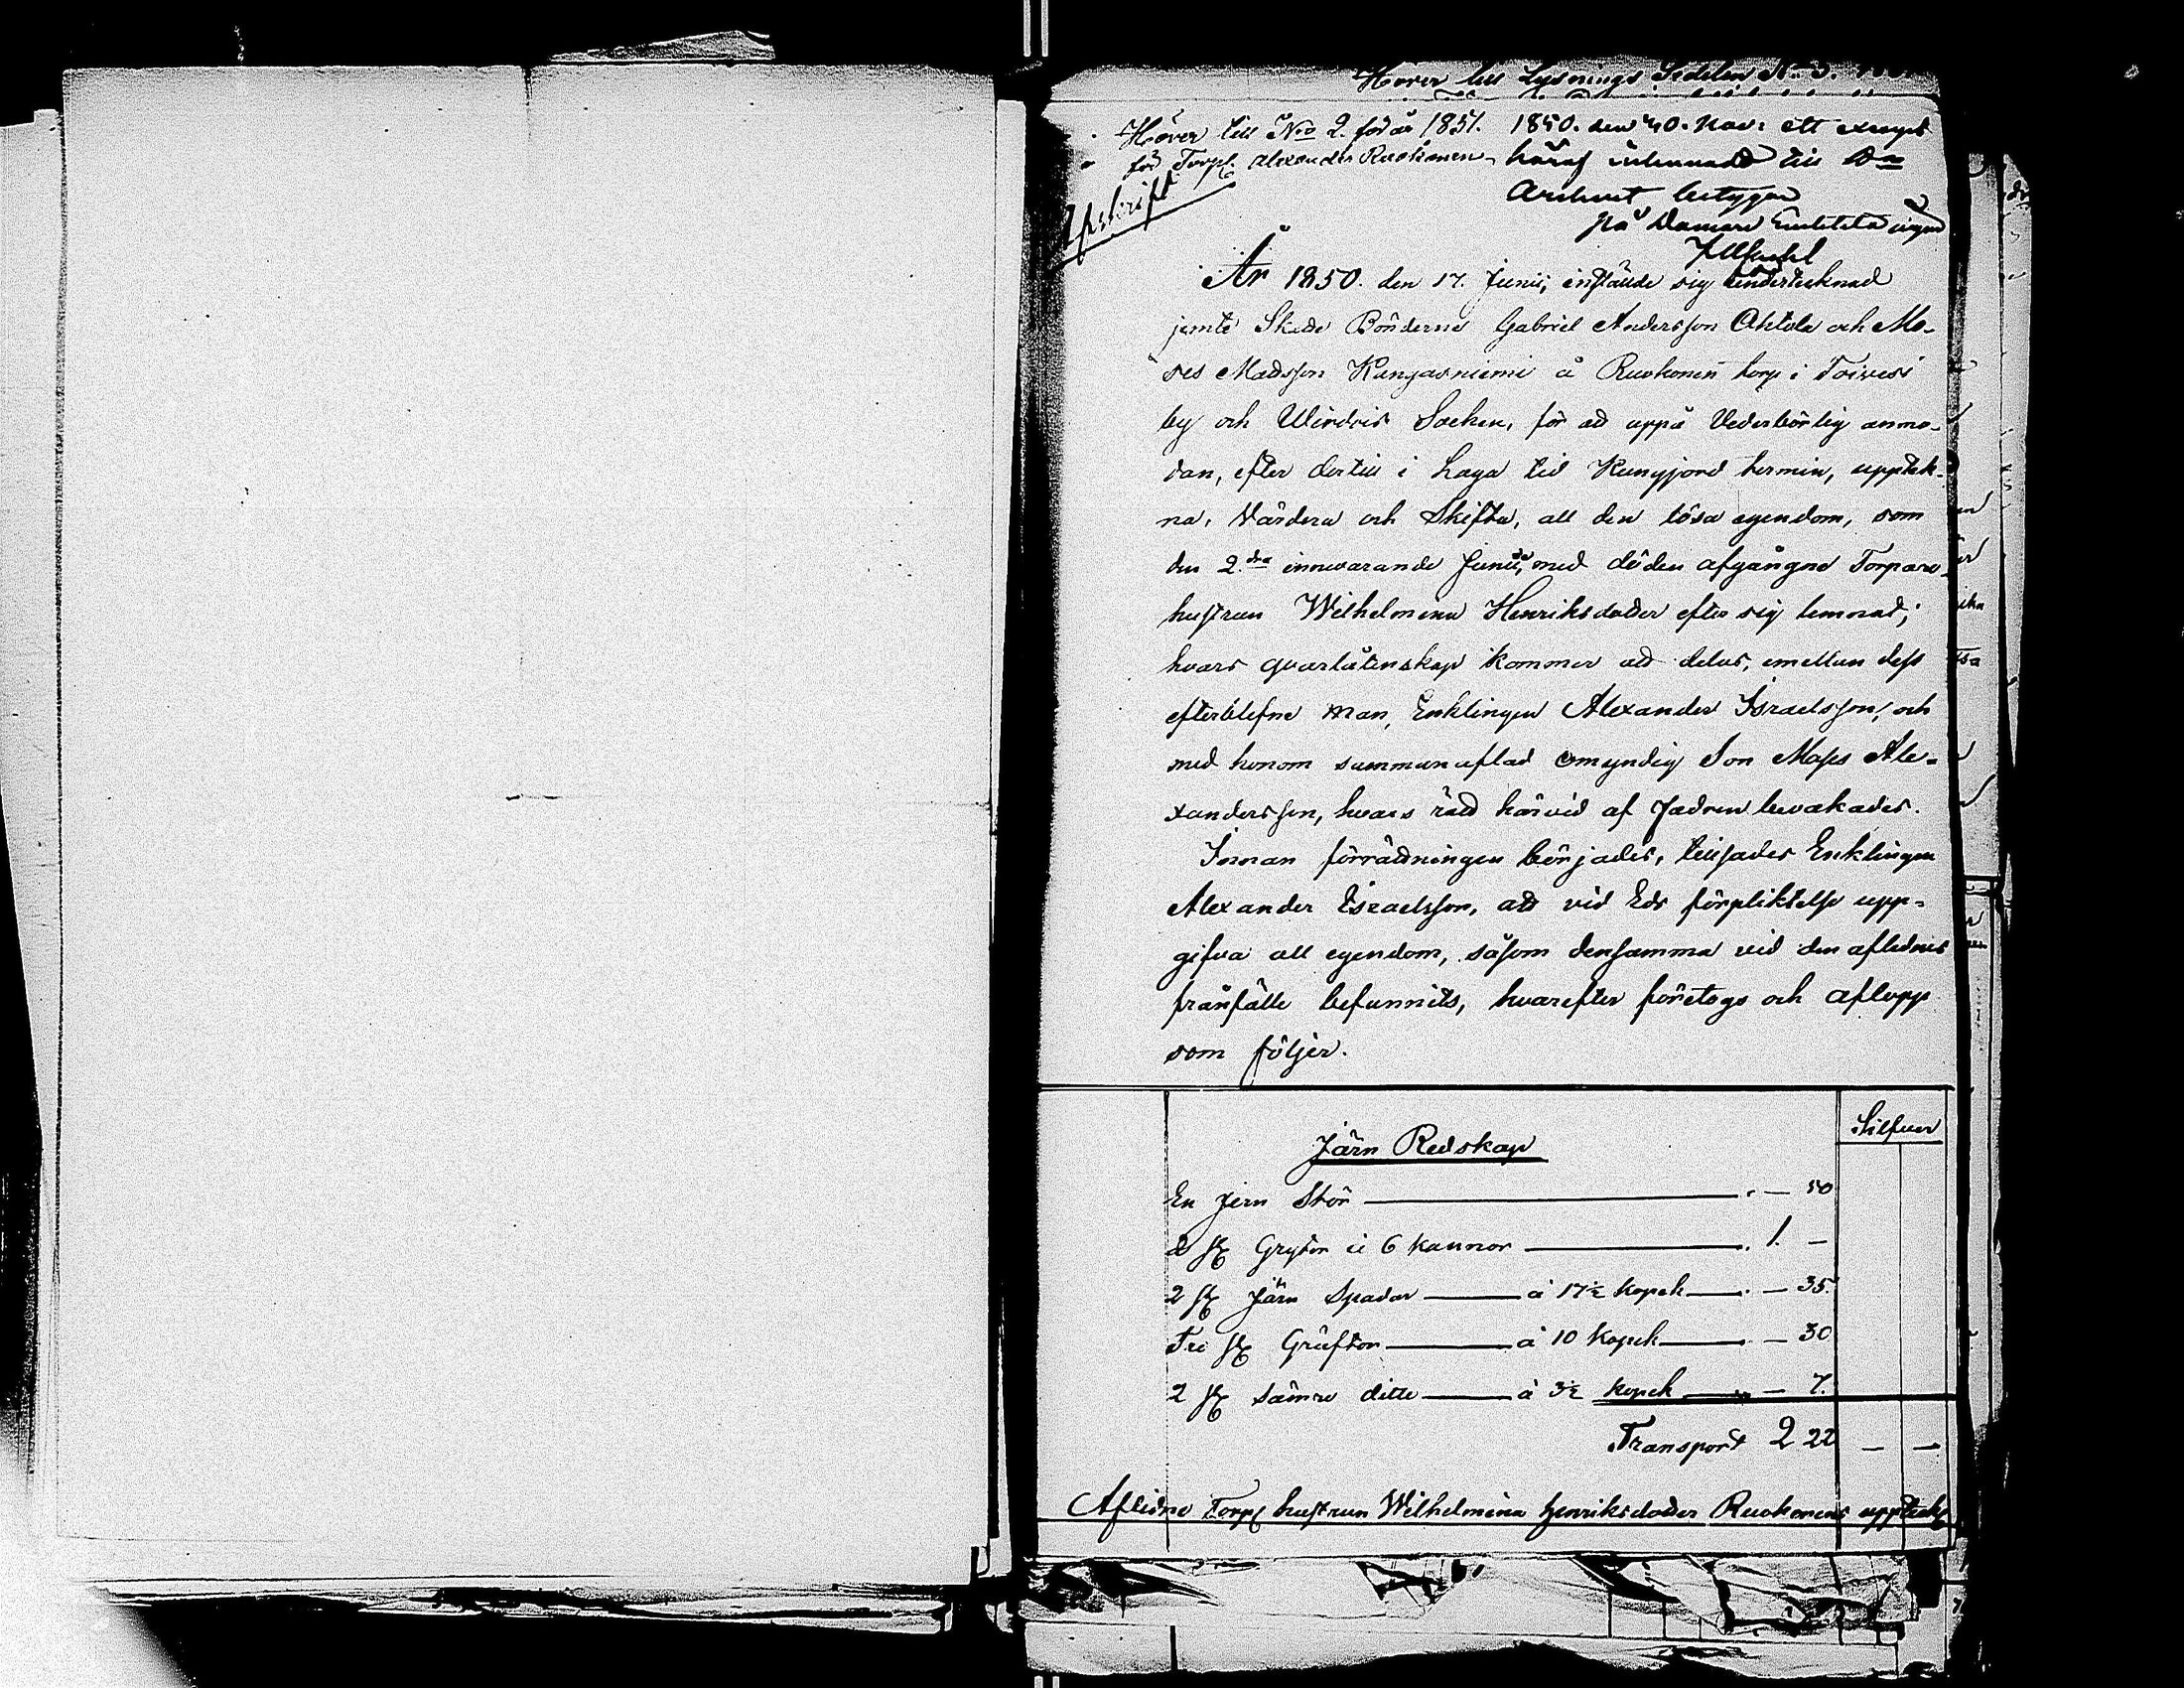 Hörer till Lysnings Sedelen N:o 3.
Hörer till N:o 2. för år 1851.
för Torp. Alexander Ruokonen
Afskrift
1850. den 10. Nov: ett exempl
häraf inlemnadt till
Archivet betygar
på Domare Embetets vägnar
År 1850. den 17. Junii, instälde sig undertecknad
jemte Skede Bönderne Gabriel Andersson Ahtola och Mo-
ses Madsson Kangasniemi å Ruokonen torp i Toivesi
by och Wirdois Socken, för att uppå Vederbörlig anmo-
dan, efter dertill i Laga tid Kungjord termin, upptek-
na, Värdera och Skifta, all den lösa egendom, som
den 2:dra innevarande Junii, med döden afgångne Torpare
hustrun Wilhelmina Henriksdotter efter sig lemnat;
hvars qvarlåtenskap kommer att delas, emellan dess
efterblefne man, Enklingen Alexander Israelsson, och
med honom sammanaflad omyndig Son Moses Ale-
xandersson, hvars rätt härvid af Fadren bevakades.
Innan förrättningen börjades, tillsades Enklingen
Alexander Israelsson, att vid Eds förpliktelse upp-
gifva all egendom, såsom densamma vid den aflednes
frånfälle befunnits, hvarefter företogs och aflopp
som följer.
Silfver
Järn Redskap
En Jern Stör — 50
2 st Grytor à 6 kannor 1. —
2 st Järn Spadar à 17½ kopek — 35.
Tre st Gräftor à 10 Kopek — 30
2 st sämre ditto à 3½ kopek — 7.
Transport 2 22 — —
Aflidne Torp hustrun Wilhelmina Henriksdotter Ruokonens uppteckn